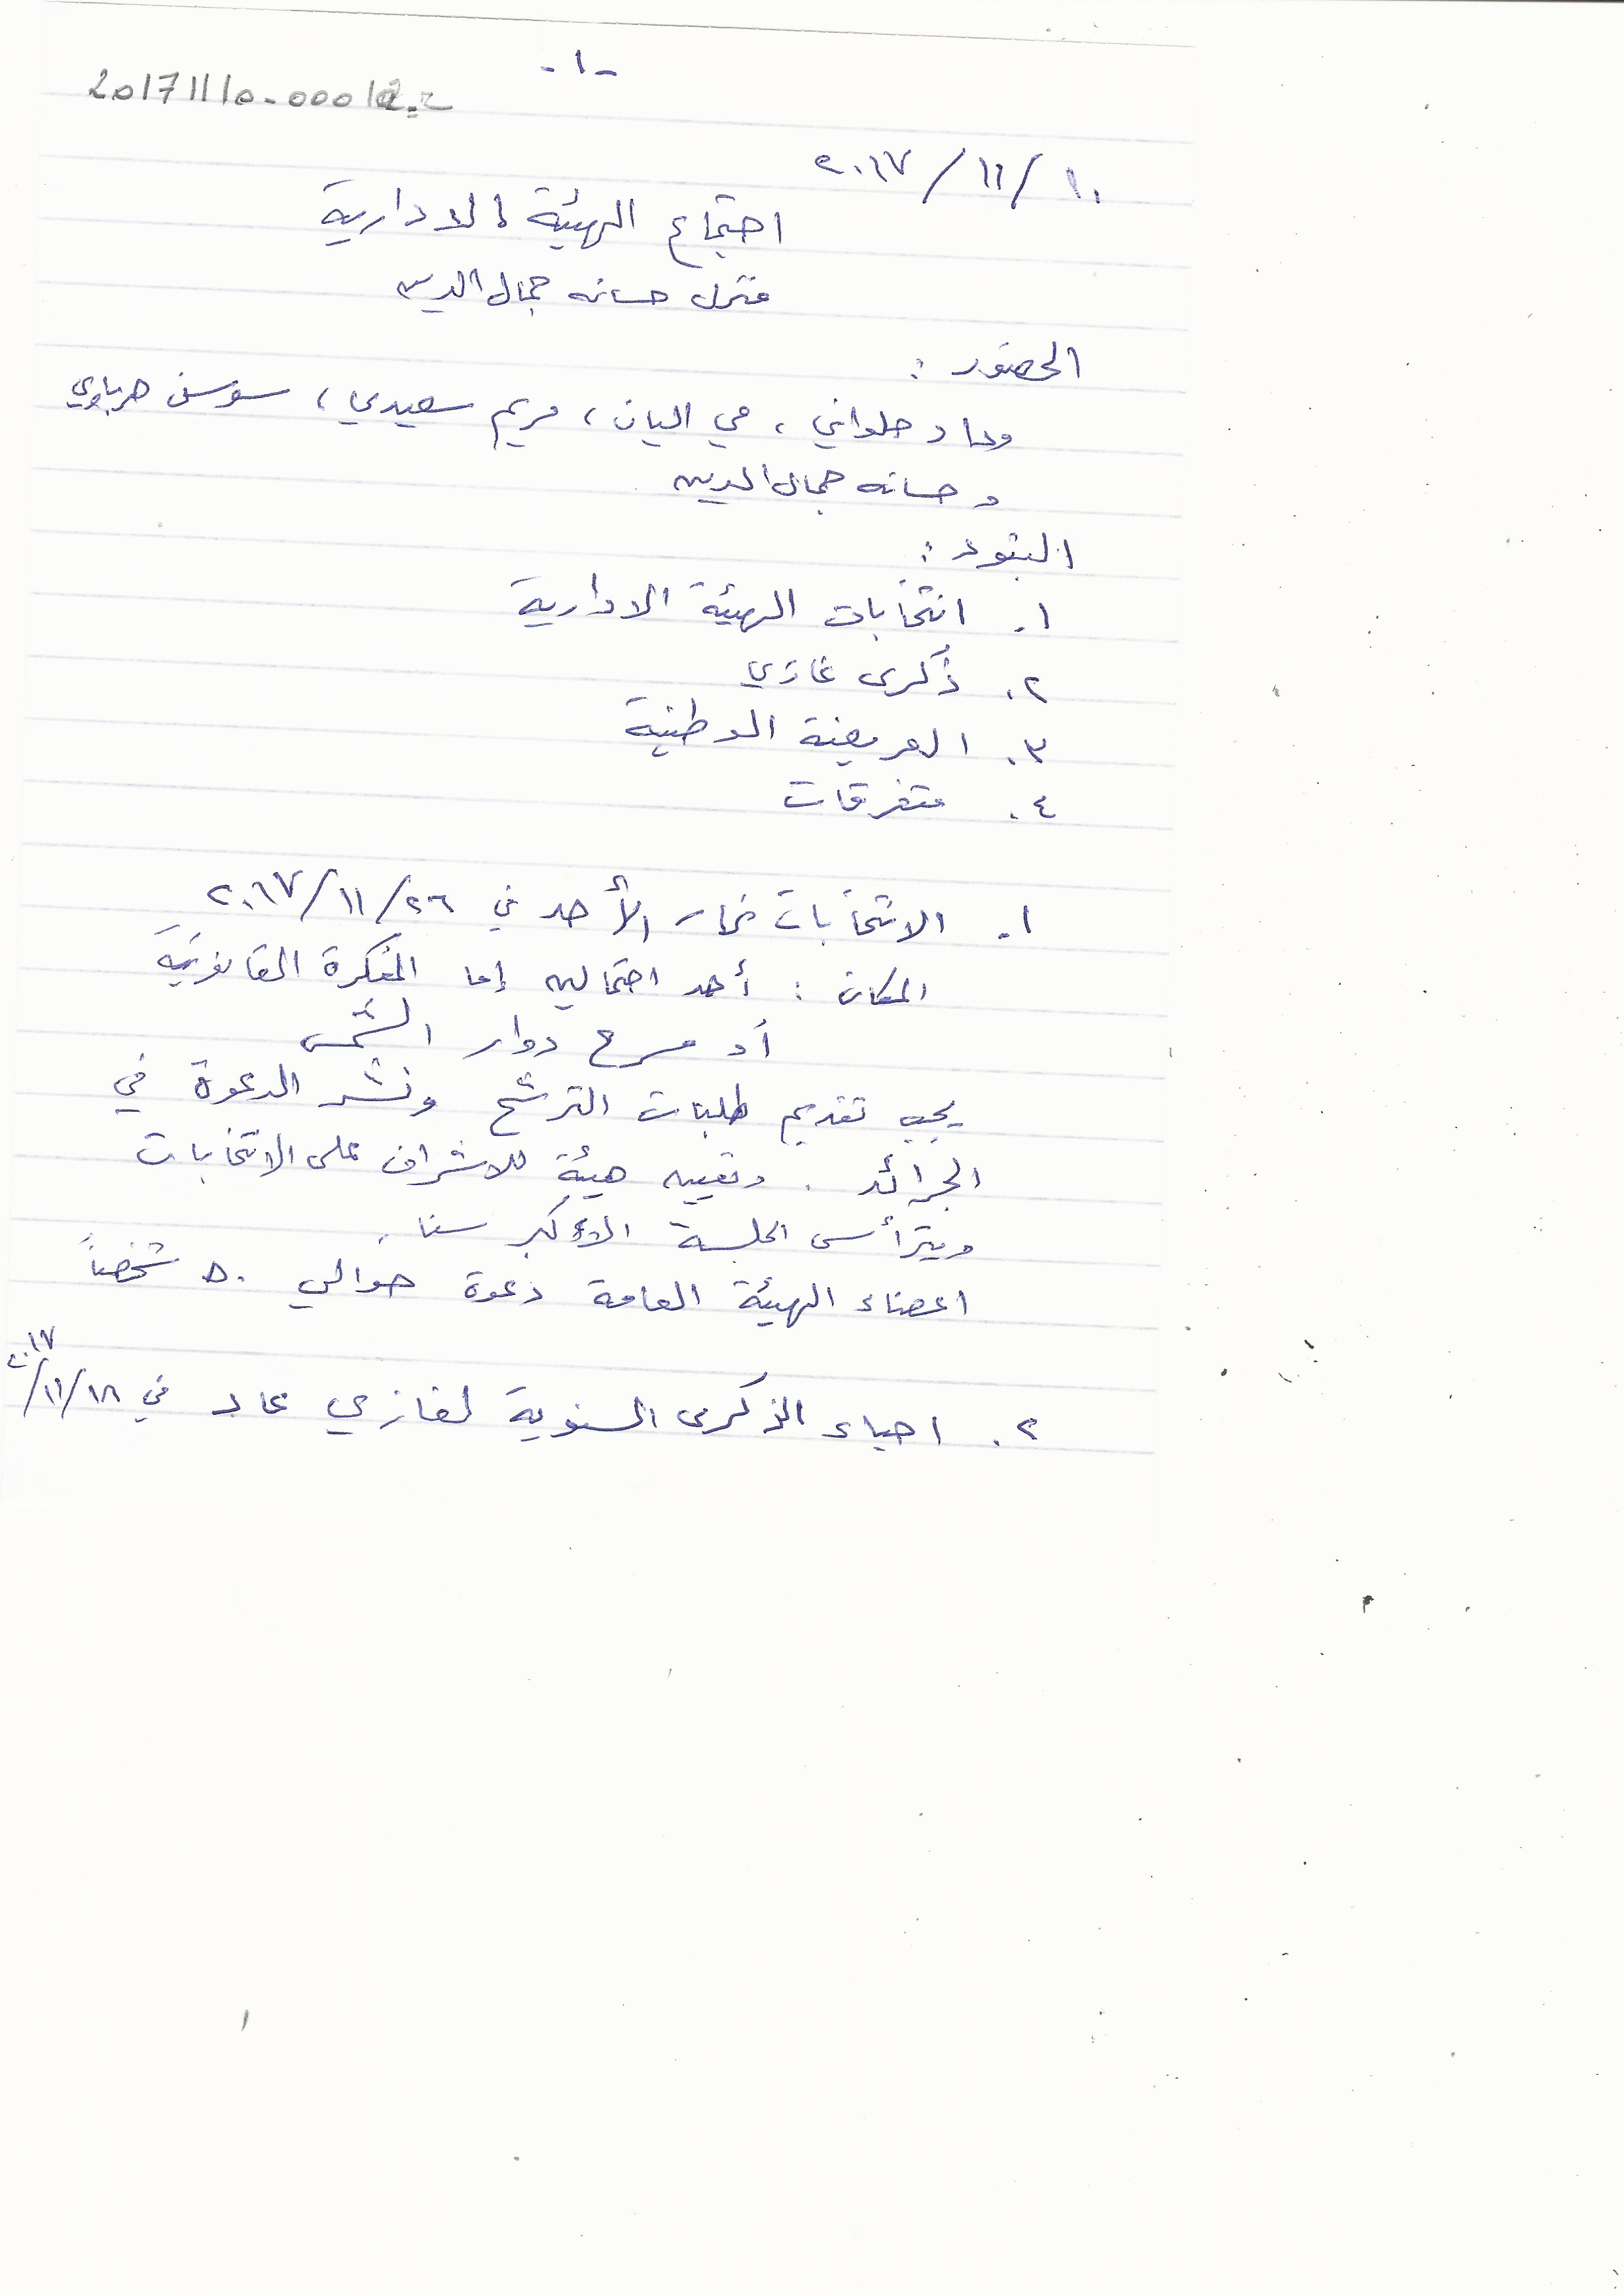 -١-
20171110-0001
١٠/١١/٢٠١٧
اجتماع الهيئة الادارية
منزل حسانه جمال الدين
الحضور :
وداد حلواني ، مي اليان ، مريم سعيدي ، سوسن هرباوي
و حسانه جمال الدين
البنود :
١. انتخابات الهيئة الادارية
٢. ذكرى غازي
٣. العريضة الوطنية
٤. متفرقات
١. الانتخابات نهار الأحد في ٢٦/١١/٢٠١٧
المكان : أحد احتمالين إما المفكرة القانونية
أو مسرح دوار الشمس
يجب تقديم طلبات الترشح ونشر الدعوة في
الجرائد . وتعيين هيئة للاشراف على الانتخابات
ويترأس الجلسة الأكبر سنا .
اعضاء الهيئة العامة دعوة حوالي ٥٠ شخصاً
٢. احياء الذكرى السنوية لغازي عاد في ١٨/١١/٢٠١٧